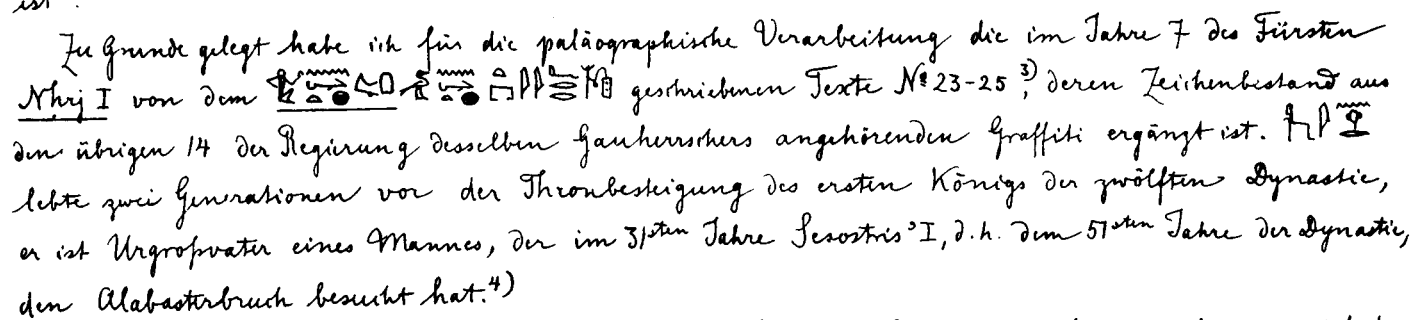 ist.
Zu Grunde gelegt habe ich für die paläographische Verarbeitung die im Jahre 7 des Fürsten
Nhrj I von dem geschriebenen Texte No 23-25 3), deren Zeichenbestand aus
den übrigen 14 der Regierung desselben Gauherrschers angehörenden Graffiti ergänzt ist.
lebte zwei Generationen vor der Thronbesteigung des ersten Königs der zwölften Dynastie,
er ist Urgroßvater eines Mannes, der im 31sten Jahre Sesostris' I, d.h. dem 51sten Jahre der Dynastie,
den Alabasterbruch besucht hat.4)